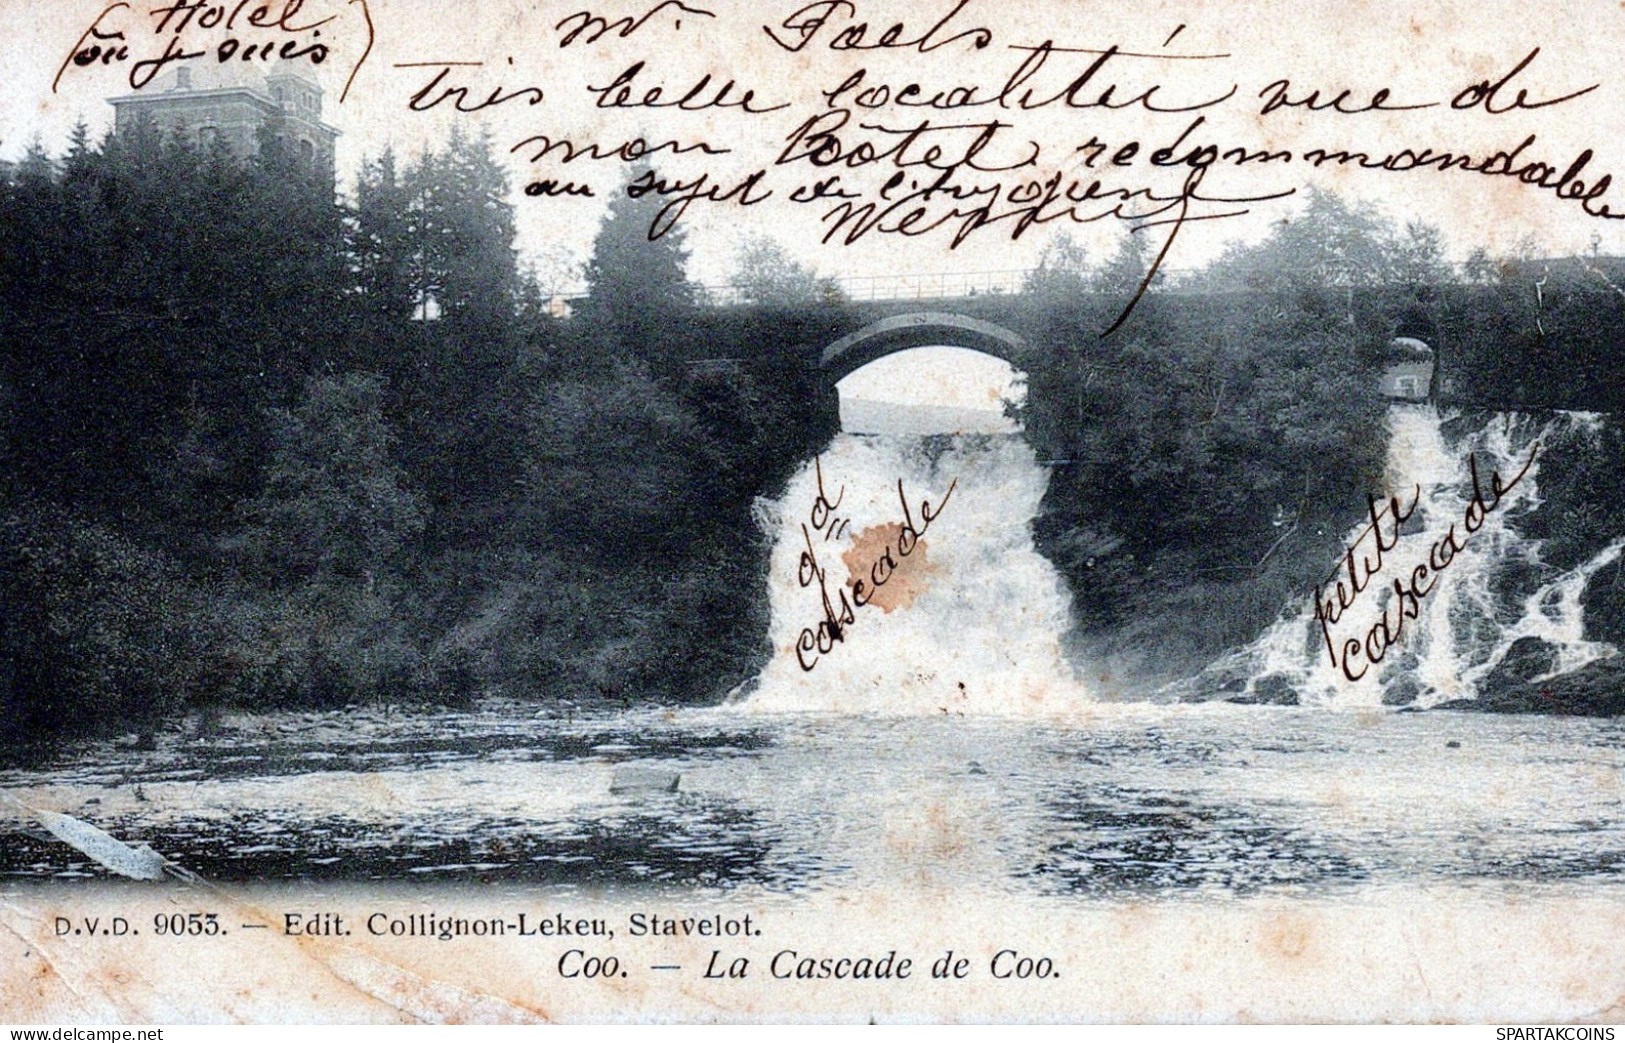 Hotel
(où je suis)
Mr
Très belle localité vue de
mon Hôtel recommandable
au sujet de l'hygiène
gd
cascade
petite
cascade
D.V.D. 9053. — Edit. Collignon-Lekeu, Stavelot.
Coo. — La Cascade de Coo.
www.delcampe.net
SPARTAKCOINS